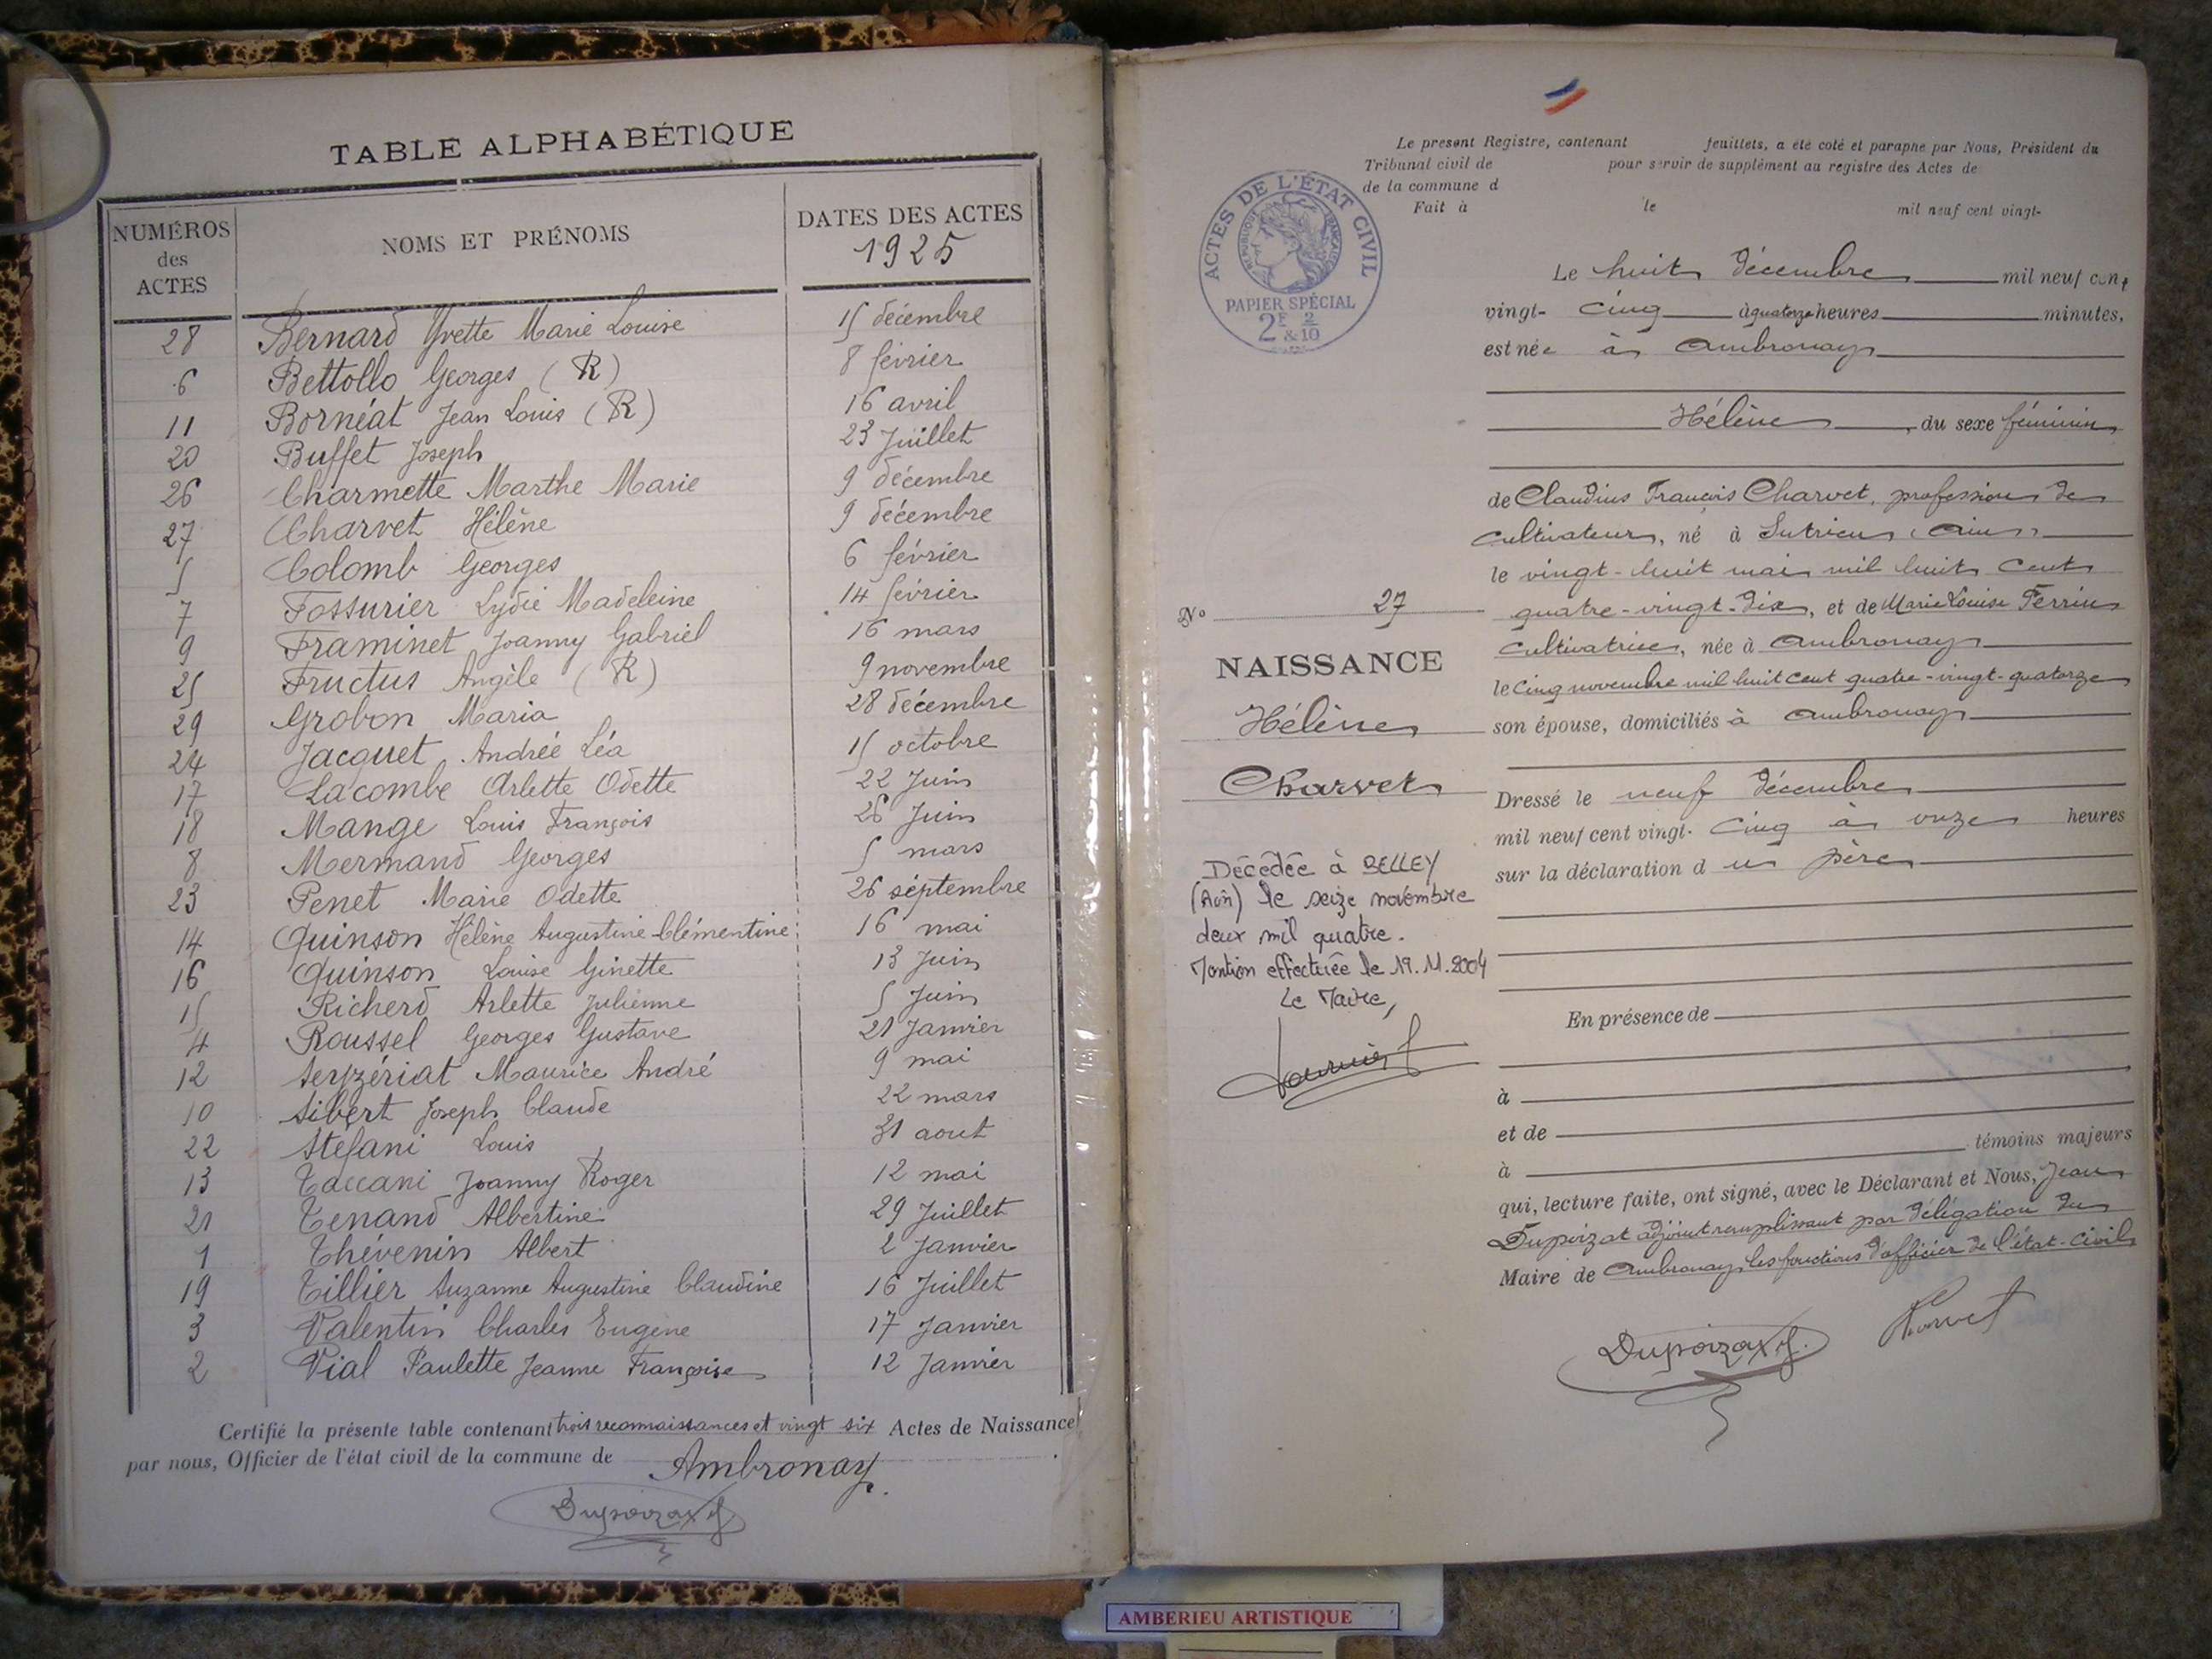 TABLE ALPHABÉTIQUE
NUMÉROS des ACTES
NOMS ET PRÉNOMS
DATES DES ACTES
1925
28 Bernard Yvette Marie Louise 15 décembre
6 Bettollo Georges (R) 8 février
11 Bornéat Jean Louis (R) 16 avril
20 Buffet Joseph 23 Juillet
26 Charmette Marthe Marie 9 décembre
27 Charvet Hélène 9 décembre
5 Colomb Georges 6 février
7 Fossurier Lydie Madeleine 14 février
9 Framinet Joanny Gabriel 16 mars
25 Fructus Angèle (R) 9 novembre
29 Grobon Maria 28 décembre
24 Jacquet Andrée Léa 15 octobre
17 Lacombe Arlette Odette 22 Juin
18 Mange Louis François 26 Juin
8 Mermand Georges 5 mars
23 Penet Marie Odette 26 séptembre
14 Quinson Hélène Augustine Clémentine 16 mai
16 Quinson Louise Ginette 13 Juin
15 Richerd Arlette Julienne 5 Juin
4 Roussel Georges Gustave 21 Janvier
12 Seryzériat Maurice André 9 mai
10 Sibert Joseph Claude 22 mars
22 Stéfani Louis 31 aout
13 Taccani Joanny Roger 12 mai
21 Tenand Albertine 29 Juillet
1 Thévenin Albert 2 Janvier
19 Tillier Suzanne Augustine Claudine 16 Juillet
3 Valentin Charles Eugène 17 Janvier
2 Vial Paulette Jeanne Françoise 12 Janvier
Certifié la présente table contenant trois reconnaissances et vingt six Actes de Naissance
par nous, Officier de l'état civil de la commune de Ambronay.
Dupoizat J.
Le present Registre, contenant feuillets, a été coté et paraphe par Nous, Président du
Tribunal civil de pour servir de supplément au registre des Actes de
de la commune d
Fait à le mil neuf cent vingt-
ACTES DE L'ÉTAT CIVIL
RÉPUBLIQUE FRANÇAISE
PAPIER SPÉCIAL
2F 2/10
& 10
Le huit décembre mil neuf cent
vingt- cinq à quatorze heures minutes,
est née à Ambronay
Hélène, du sexe féminin
de Claudius François Charvet, profession de
cultivateur, né à Sutrieu (Ain)
le vingt-huit mai mil huit cent
quatre-vingt-dix, et de Marie Louise Perrin
cultivatrice, née à Ambronay
le cinq novembre mil huit cent quatre-vingt-quatorze
son épouse, domiciliés à Ambronay
Dressé le neuf décembre
mil neuf cent vingt- cinq à onze heures
sur la déclaration d u père
En présence de
à
et de
à témoins majeurs
qui, lecture faite, ont signé, avec le Déclarant et Nous, Jean
Dupoizat adjoint remplissant par délégation du
Maire de Ambronay, les fonctions d'officier de l'état-civil
Dupoizat J. Charvet
No 27
NAISSANCE
Hélène
Charvet
Décédée à BELLEY
(Ain) le seize novembre
deux mil quatre.
Mention effectuée le 19.11.2004
Le Maire,
AMBERIEU ARTISTIQUE